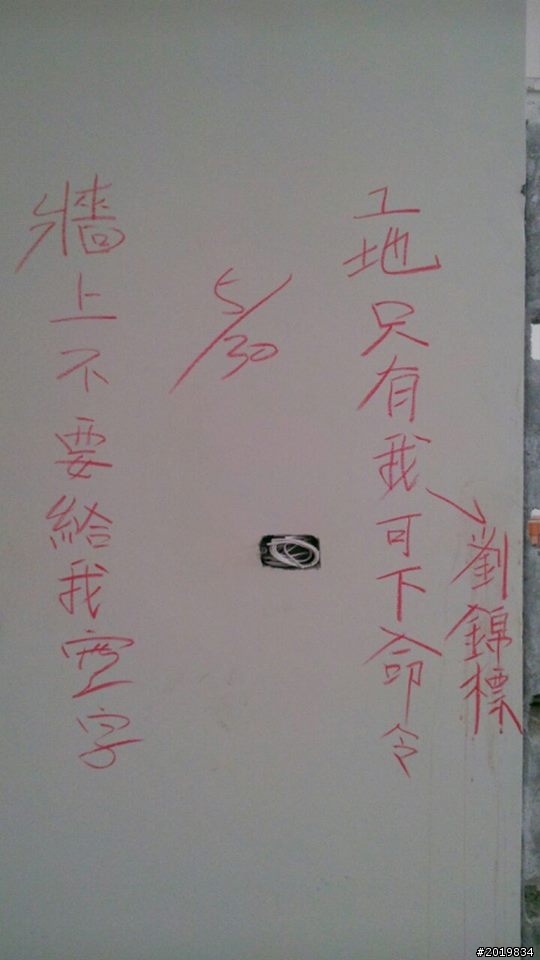 工地只有我可下命令
劉錦標
5/30
牆上不要給我寫字
#2019834